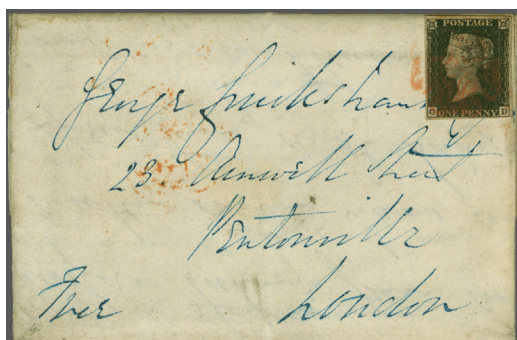 POSTAGE
O D
ONE PENNY
George Cruikshank
23 Amwell Street
Pentonville
London
Free